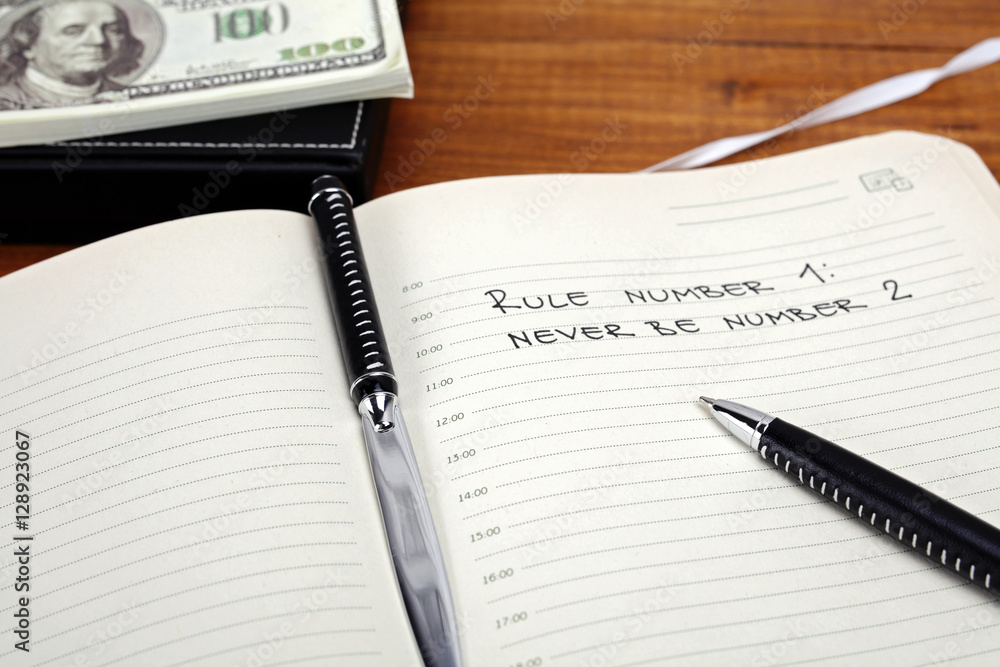 100
100
ONE HUNDRED DOLLARS
8:00
RULE NUMBER 1:
9:00
NEVER BE NUMBER 2
10:00
11:00
12:00
13:00
14:00
15:00
16:00
17:00
18:00
Adobe Stock | 128923067